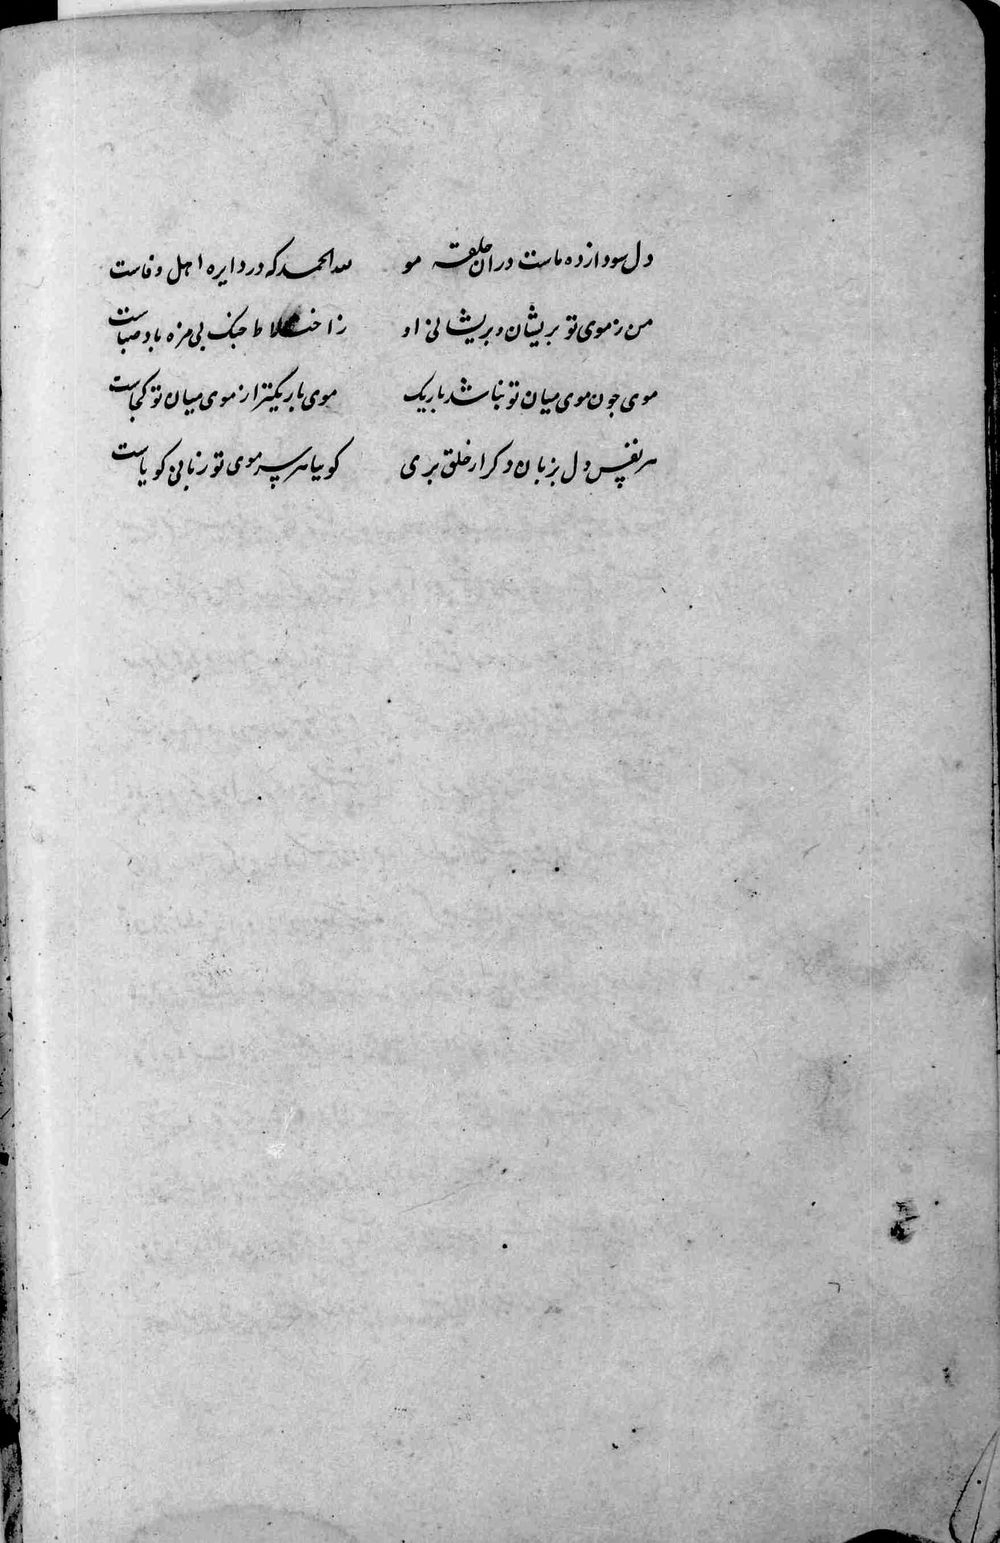 دل سودازده ماست دران حلقه مو لله الحمد که در دایره اهل وفاست
من ز موی تو بریشان و بریشانی او ز اختلاط خنک بی مزه باد صباست
موی جون موی میان تو نباشد باریک موی باریکتر از موی میان تو کجاست
هر نفس دل بزبان دکر از خلق بری کوییا هر سر موی تو زبانی کویاست